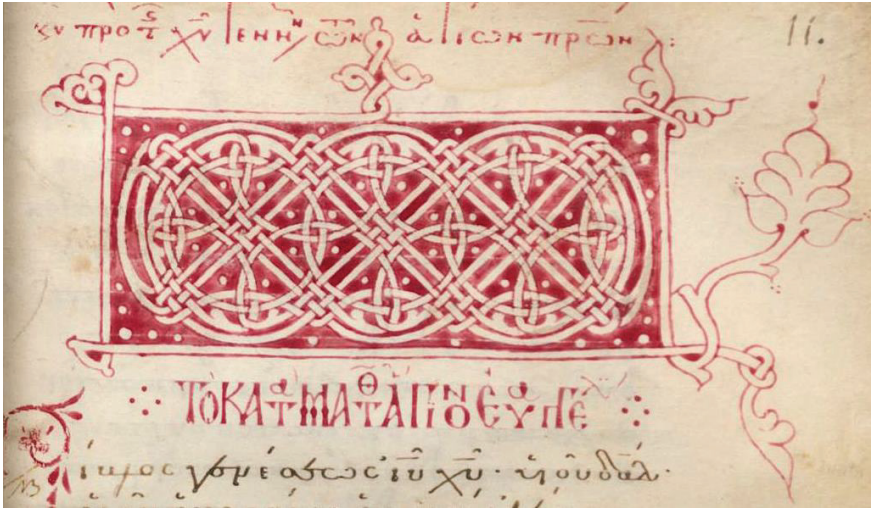 κυ προ τ χυ γεννη των ἁγίων πρων : 11.
ΤΟ ΚΑΤΑ ΜΑΤΘ ΑΓΙΟΝ ΕΥΑΓΓΕ
Βίβλος γενέσεως ἰυ χυ · υἱοῦ δαδ ·